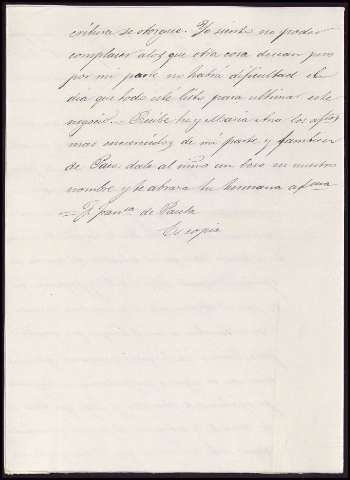 critura se otorgue. Yo siento no poder
complacer a los que otra cosa desean pero
por mi parte no habrá dificultad el
dia que todo esté listo para ultimar este
negocio. = Recibe tu y Maria Ana los aftos
mas encarecidos de mi parte y tambien
de Paco dale al niño un beso en nuestro
nombre y te abraza tu hermana afma
= Franca de Paula
Es copia